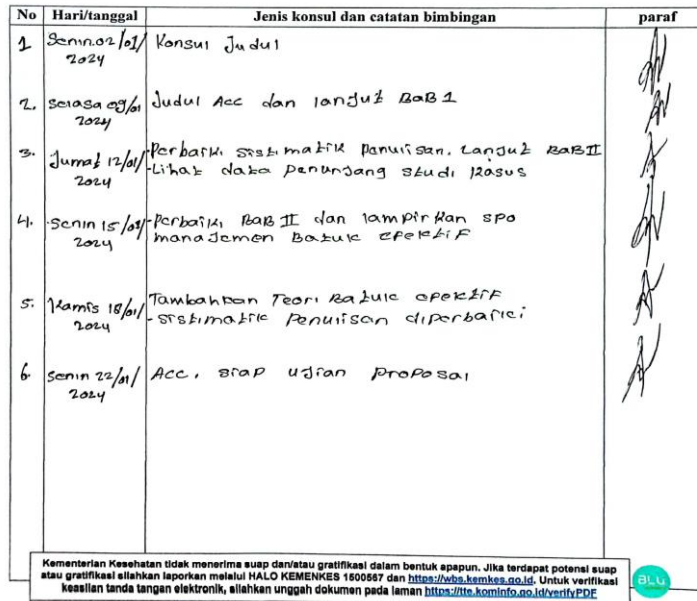 No Hari/tanggal Jenis konsul dan catatan bimbingan paraf
1 Senin.02/01/ Konsul Judul
2024
2. Selasa 09/01 Judul Acc dan lanjut BaB 1
2024
3. Jumat 12/01/ -Perbaiki sistimatik penulisan. Lanjut BaB II
2024 -Lihat data penunjang studi kasus
4. Senin 15/01/ -Perbaiki BaB II dan lampirkan spo
2024 manajemen Batuk epektif
5. Kamis 18/01/ Tambahkan Teori Batuk epektif
2024 -sistimatik penulisan diperbaiki
6 Senin 22/01/ Acc. siap ujian proposal
2024
Kementerian Kesehatan tidak menerima suap dan/atau gratifikasi dalam bentuk apapun. Jika terdapat potensi suap
atau gratifikasi silahkan laporkan melalui HALO KEMENKES 1500567 dan https://wbs.kemkes.go.id. Untuk verifikasi
keaslian tanda tangan elektronik, silahkan unggah dokumen pada laman https://tte.kominfo.go.id/verifyPDF
BLU